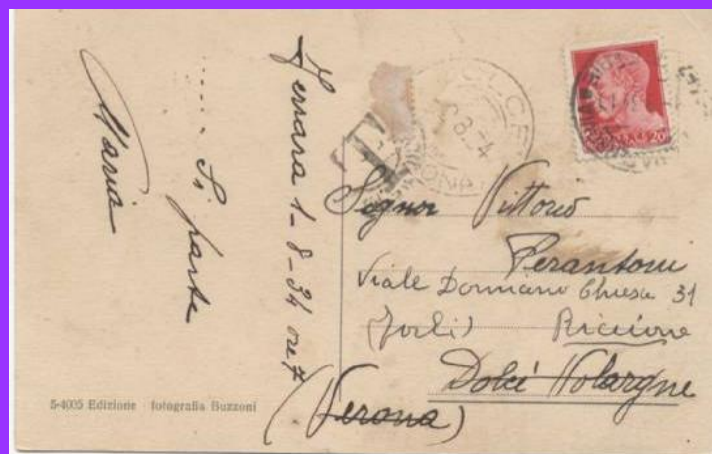 Ferrara 1-8-34 ore 7
..... Si parte
Maria
T
Signor Vittorio
Perantoni
Viale Damiano Chiesa 31
(Forlì) Riccione
Dolcé Volargne
(Verona)
5-4005 Edizione fotografia Buzzoni